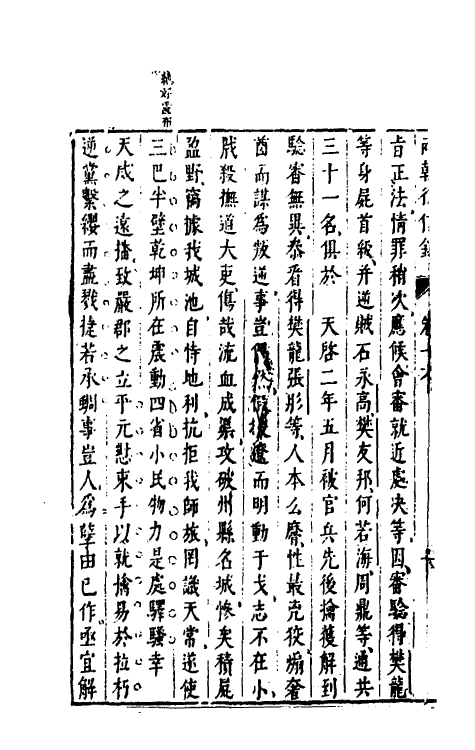 兩朝從信錄 卷十六
旨正法情罪稍次應候會審就近處決等因審驗得樊龍
等身屍首級并逆賊石永高樊友邦何若海周鼎等通共
三十一名俱於 天啓二年五月被官兵先後擒獲解到
驗審無異叅看得樊龍張彤等人本么麽性最兇狡煽奢
酋而謀爲叛逆事豈援遼而明動于戈志不在小
戕殺撫道大吏傷哉流血成渠攻破州縣名城慘矣積屍
盈野竊據我城池自恃地利抗拒我師旅罔識天常遂使
三巴半壁乾坤所在震動四省小民物力是處驛騷幸
天威之遠播致嚴郡之立平元憝束手以就擒易於拉朽
逆黨繫纓而盡戮捷若承蜩事豈人爲孽由已作亟宜解